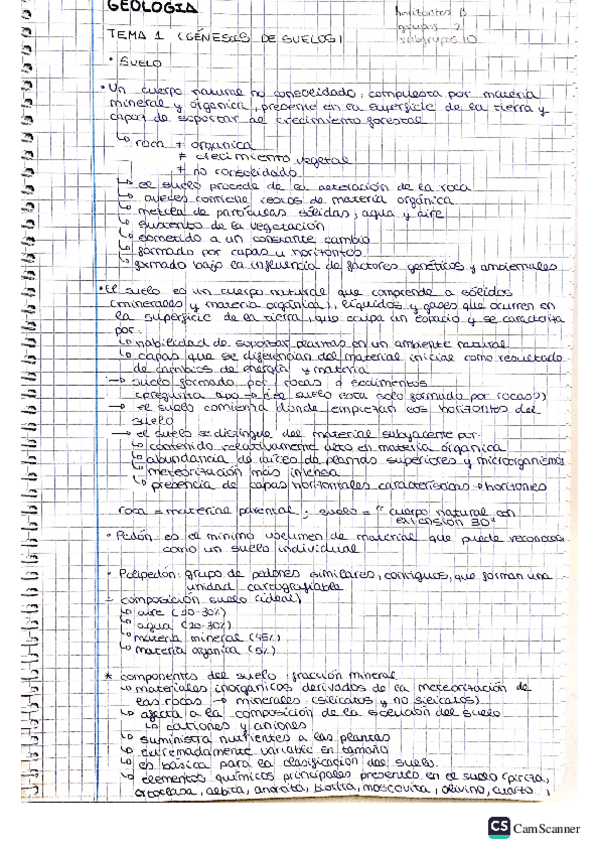 GEOLOGIA
horizontes B
grupos 2
subgrupos 10
TEMA 1 (GÉNESIS DE SUELOS)
• SUELO
• Un cuerpo natural no consolidado, compuesta por materia
mineral y orgánica, presente en la superficie de la tierra y
capaz de soportar el crecimiento forestal
↳ roca ≠ orgánica
≠ crecimiento vegetal
≠ no consolidado
↳ el suelo procede de la alteración de la roca
↳ contiene restos de materia orgánica
↳ mezcla de partículas sólidas, agua y aire
↳ sustento de la vegetación
↳ sometido a un constante cambio
↳ formado por capas u horizontes
↳ formado bajo la influencia de factores genéticos y ambientales
• El suelo es un cuerpo natural que comprende a sólidos
(minerales y materia orgánica), líquidos y gases que ocurren en
la superficie de la tierra, que ocupa un espacio y se caracteriza
por:
↳ habilidad de soportar plantas en un ambiente natural
↳ capas que se diferencian del material inicial como resultado
de cambios de energía y materia
→ suelo formado por rocas o sedimentos
(pregunta el suelo esta solo formado por rocas?)
→ el suelo comienza donde empiezan los horizontes del
suelo
→ el suelo se distingue del material subyacente por:
↳ contenido relativamente alto en materia orgánica
↳ abundancia de raíces de plantas superiores y microorganismos
↳ meteorización más intensa
↳ presencia de capas horizontales características → horizontes
roca = material parental ; suelo = "cuerpo natural con
extensión 3D"
• Pedón: es el mínimo volumen de material que puede reconocerse
como un suelo individual
• Polipedón: grupo de pedones similares, contiguos, que forman una
unidad cartografiable
- composición suelo (ideal)
↳ aire (20-30%)
↳ agua (20-30%)
↳ materia mineral (45%)
↳ materia orgánica (5%)
* componentes del suelo: fracción mineral
↳ materiales inorgánicos derivados de la meteorización de
las rocas → minerales (silicatos y no silicatos)
↳ afecta a la composición de la solución del suelo
↳ cationes y aniones
↳ suministra nutrientes a las plantas
↳ extremadamente variable en tamaño
↳ es básica para la clasificación del suelo.
↳ elementos químicos principales presentes en el suelo (pirita,
ortoclasa, albita, anortita, biotita, moscovita, olivino, cuarzo
CS CamScanner